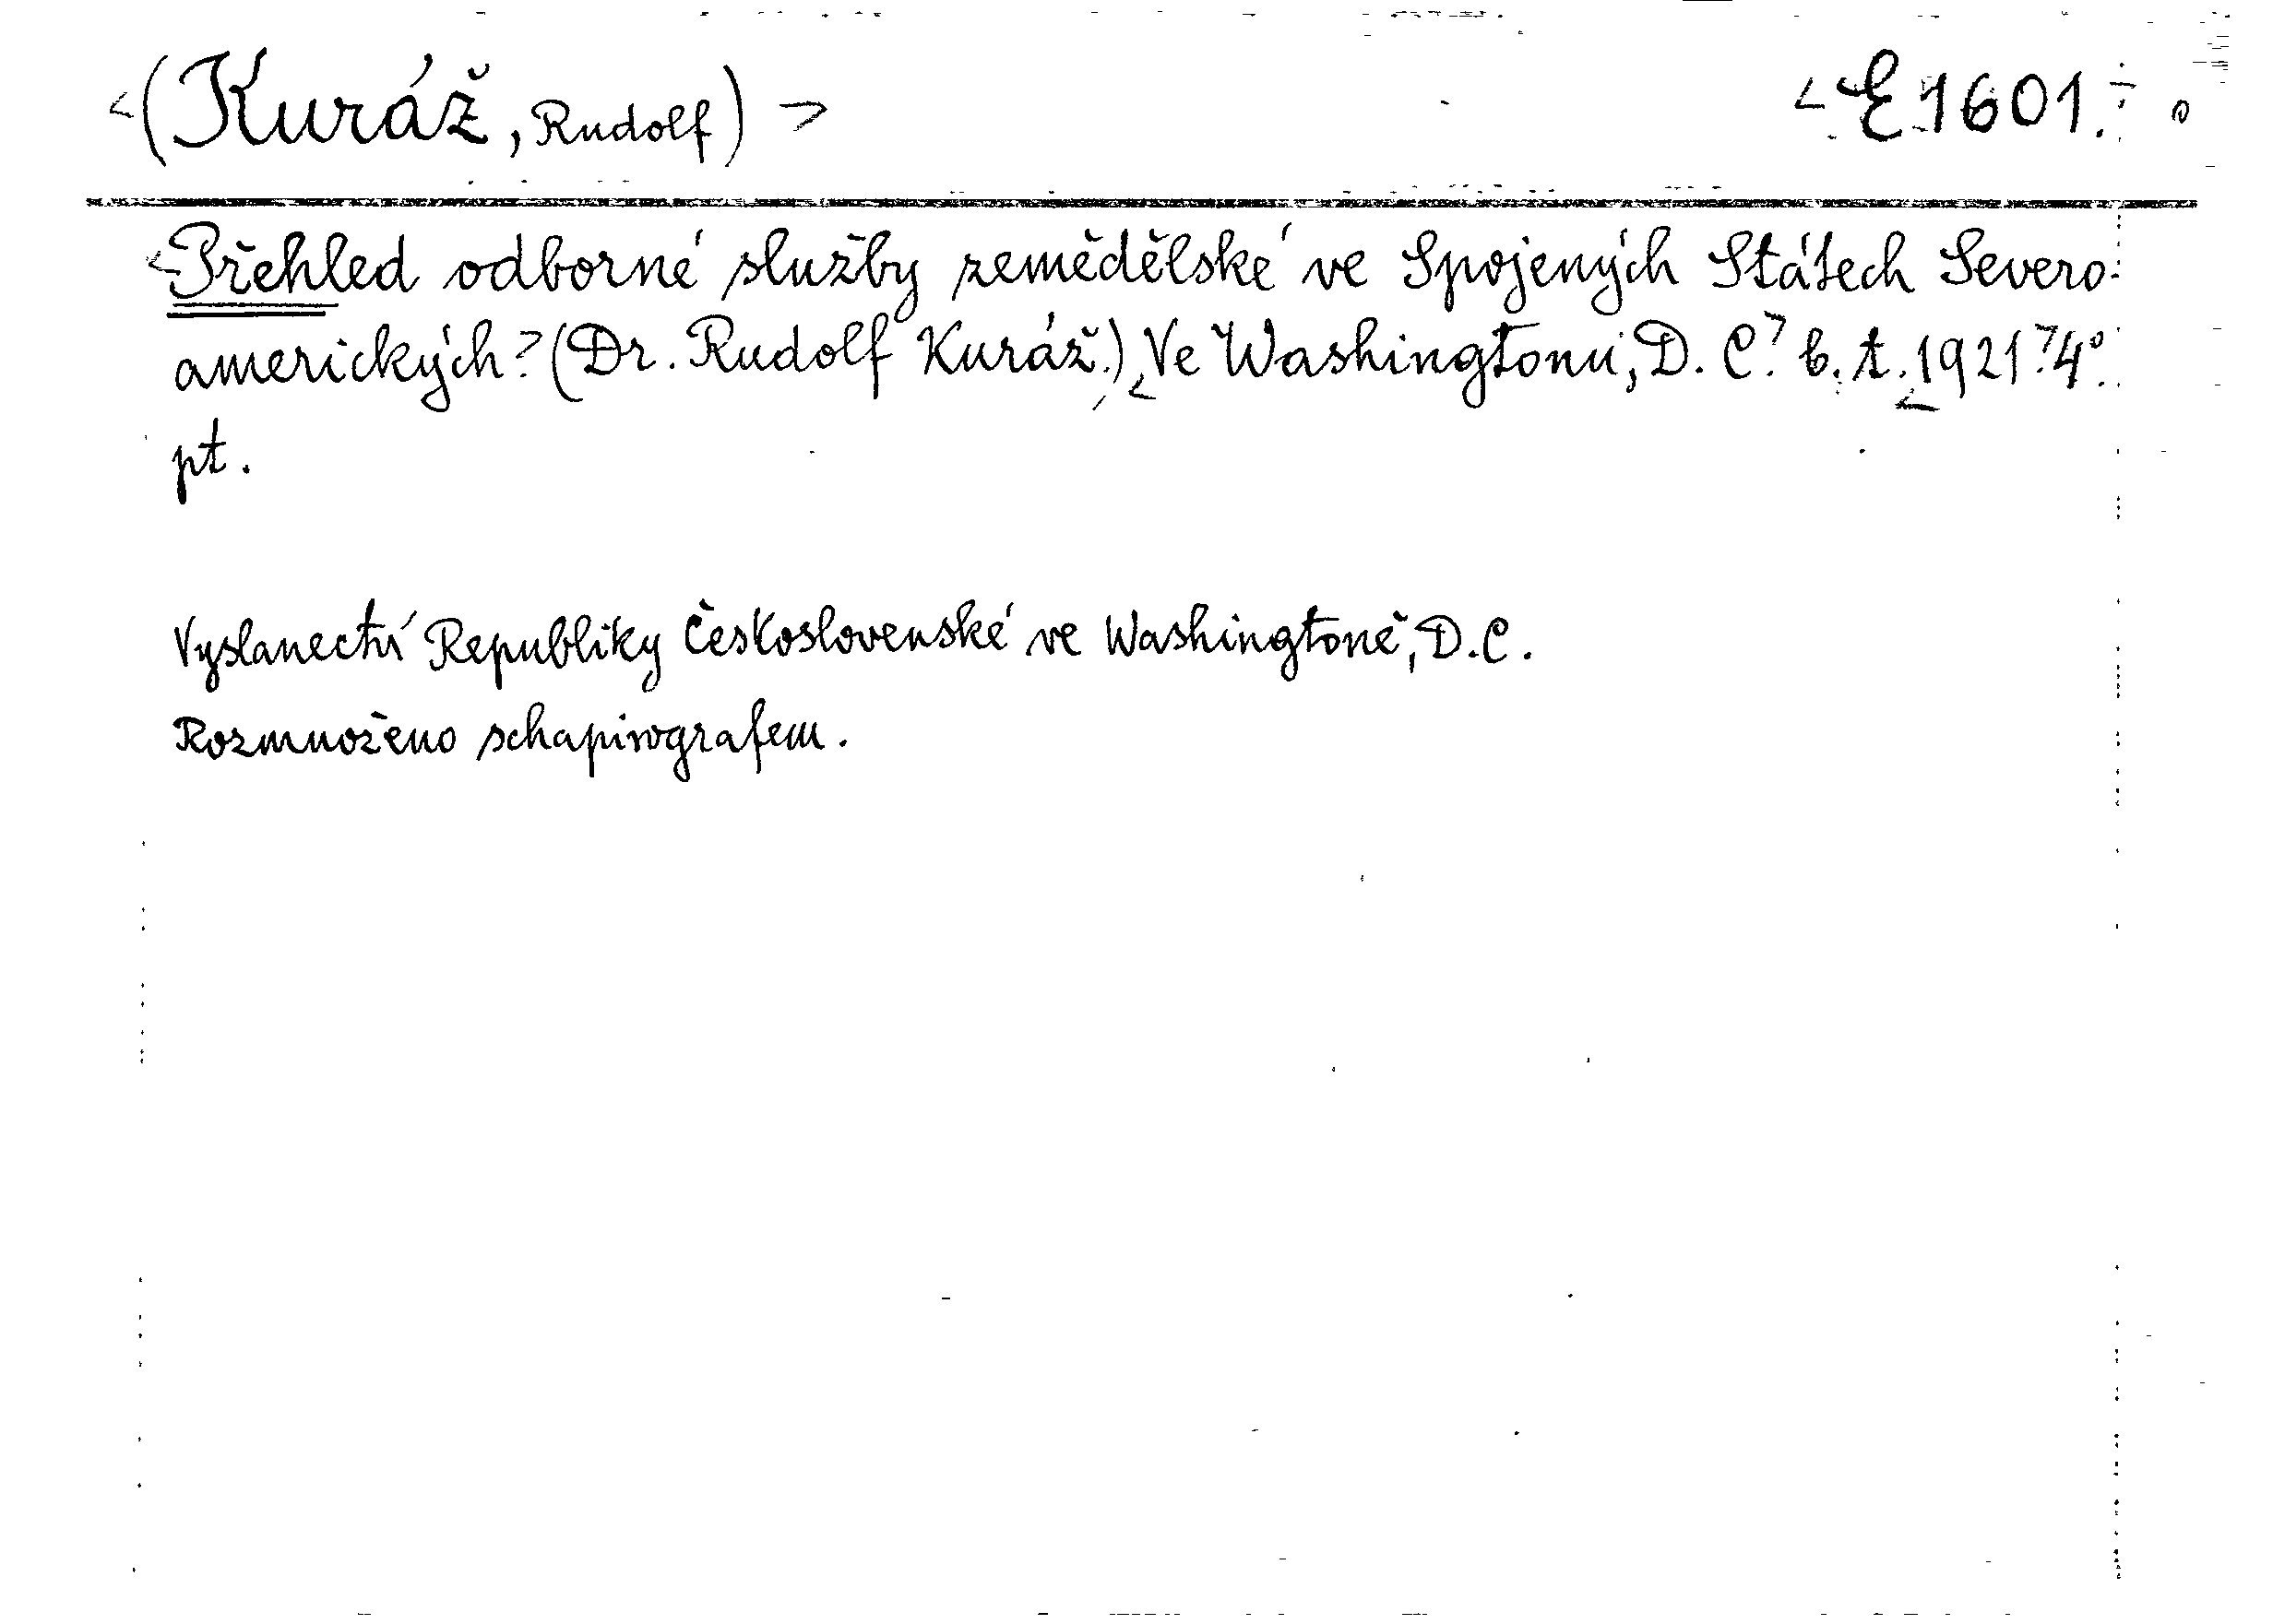 (Kuráž, Rudolf) E 1601.
Přehled odborné služby zemědělské ve Spojených Státech Severo-
amerických. (Dr. Rudolf Kuráž.) Ve Washingtonu, D. C. b. t. 1921. 4°.
pt.
Vyslanectví Republiky Československé ve Washingtoně, D.C.
Rozmnoženo schapirografem.